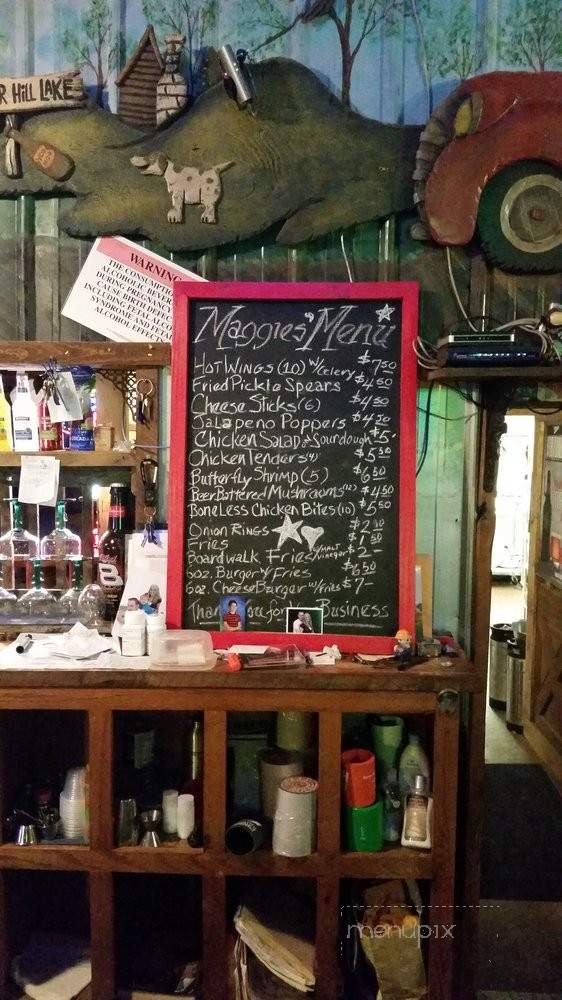 R HILL LAKE
WARNING
THE CONSUMPTION
ALCOHOLIC BEVER
DURING PREGNANC
CAUSE BIRTH DEFEC
INCLUDING FETAL
SYNDROME AND
ALCOHOL EFFECT
Maggies' Menu
HOT WINGS (10) W/Celery $7.50
Fried Pickle Spears $4.50
Cheese Sticks (6) $4.50
Jalapeno Poppers $4.50
Chicken Salad & Sourdough $5.
Chicken Tenders (4) $5.50
Butterfly Shrimp (5) $6.50
Beer Battered Mushrooms $4.50
BoneLess Chicken Bites (10) $5.50
Onion Rings
Fries
Boardwalk Fries w/Malt Vinegar $2-
6oz. Burger w/ Fries $6.50
6oz. Cheese Burger w/Fries $7-
Than ou for Business
8
menupix